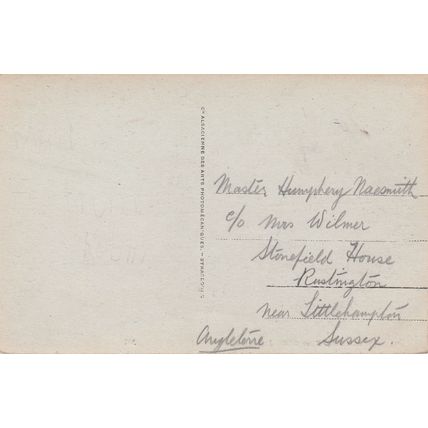 Cie ALSACIENNE DES ARTS PHOTOMÉCANIQUES. – STRASBOURG
Master Humphery Naesmith
c/o Mrs Wilmer
Stonefield House
Rustington
near Littlehampton
Angleterre. Sussex.